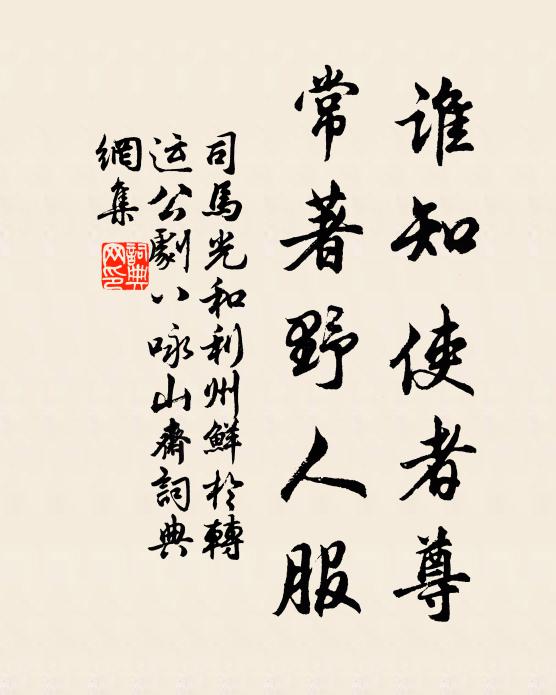 誰知使者尊
常著野人服
司馬光和利州鮮於轉
运公劇八咏山齋詞典
網集
詞典网印